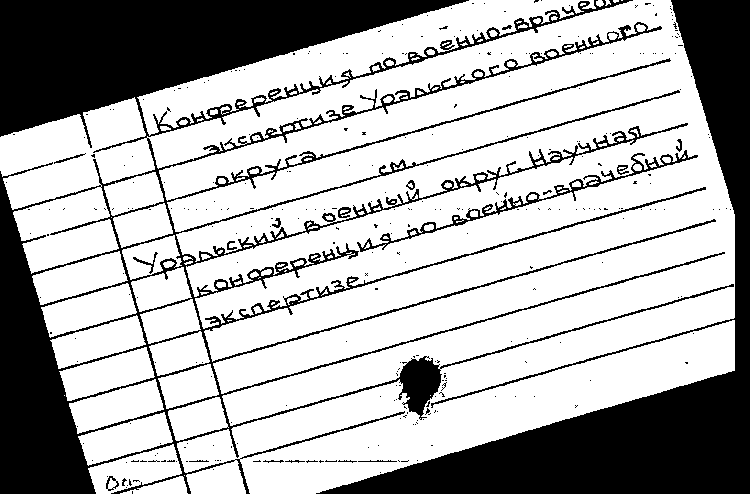 Конференция по военно-врачебн
экспертизе Уральского военного
округа.
см.
Уральский военный округ. Научная
конференция по военно-врачебной
экспертизе.